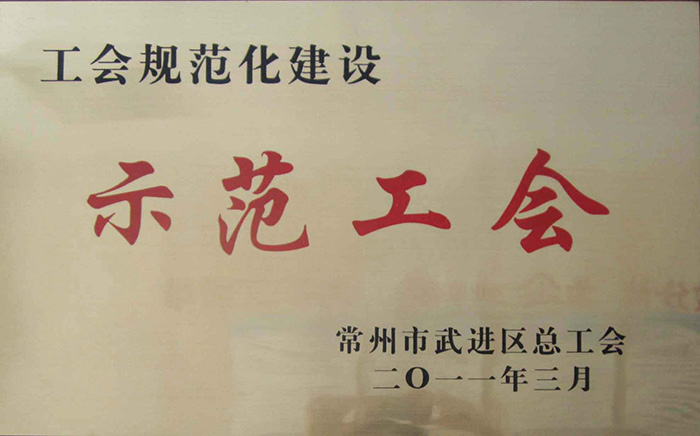 工会规范化建设
示范工会
常州市武进区总工会
二〇一一年三月